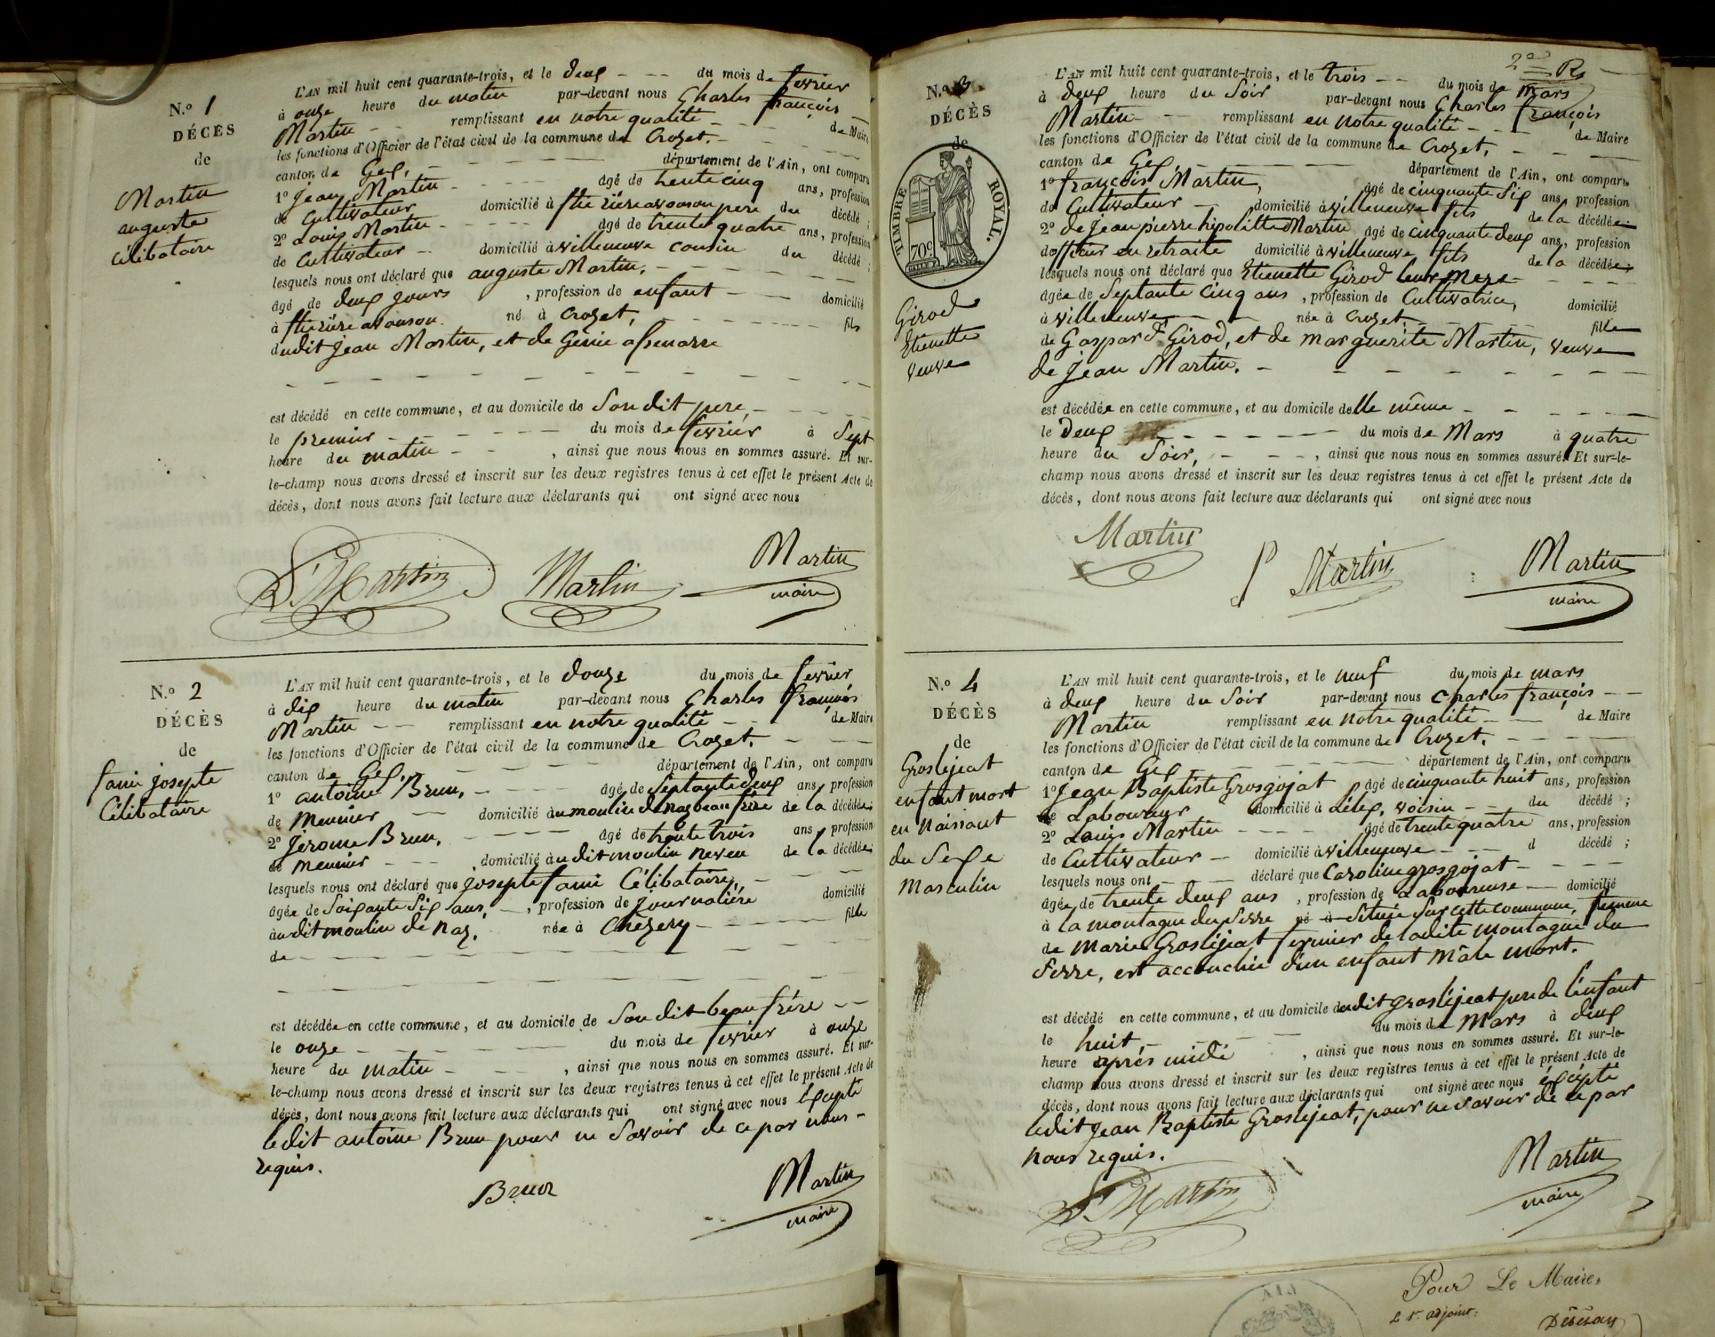 N.º 1
DÉCÈS
de
Martin
auguste
célibataire
L'AN mil huit cent quarante-trois, et le deux du mois de fevrier
à onze heure du matin par-devant nous Charles françois
Martin remplissant en notre qualité de Maire
les fonctions d'Officier de l'état civil de la commune de Crozet.
canton de Gex, département de l'Ain, ont comparu
1º Jean Martin agé de trente cinq ans, profession
de Cultivateur domicilié à pere du décédé;
2º Louis Martin agé de trente quatre ans, profession
de Cultivateur domicilié à villeneuve cousin du décédé;
lesquels nous ont déclaré que auguste Martin,
âgé de deux jours, profession de enfant domicilié
à né à Crozet, fils
dudit Jean Martin, et de Génie
est décédé en cette commune, et au domicile de Son dit pere,
le premier du mois de fevrier à Sept
heure du matin, ainsi que nous nous en sommes assuré. Et sur-
le-champ nous avons dressé et inscrit sur les deux registres tenus à cet effet le présent Acte de
décès, dont nous avons fait lecture aux déclarants qui ont signé avec nous
L. Martin Martin Martin
maire
N.º 2
DÉCÈS
de
fami josepte
Célibataire
L'AN mil huit cent quarante-trois, et le douze du mois de fevrier
à dix heure du matin par-devant nous Charles françois
Martin remplissant en notre qualité de Maire
les fonctions d'Officier de l'état civil de la commune de Crozet.
canton de Gex, département de l'Ain, ont comparu
1º antoine Brun, agé de Septante deux ans, profession
de Meunier domicilié au moulin de naz beau frère de la décédée;
2º Jerome Brun, agé de trente trois ans, profession
de Meunier domicilié au dit moulin neveu de la décédée;
lesquels nous ont déclaré que josepte fami Célibataire,
âgée de Soixante Six ans, profession de journalière domicilié
au dit moulin de naz. née à Chézery fille
de
est décédée en cette commune, et au domicile de Son dit beau frère
le onze du mois de fevrier à onze
heure du matin, ainsi que nous nous en sommes assuré. Et sur-
le-champ nous avons dressé et inscrit sur les deux registres tenus à cet effet le présent Acte de
décès, dont nous avons fait lecture aux déclarants qui ont signé avec nous Exepté
ledit antoine Brun pour ne Savoir de ce par nous
requis.
Brun Martin
maire
2e R
N.º 3
DÉCÈS
de
TIMBRE ROYAL.
70c
Girod
Etienette
veuve
L'AN mil huit cent quarante-trois, et le trois du mois de Mars
à deux heure du Soir par-devant nous Charles françois
Martin remplissant en notre qualité de Maire
les fonctions d'Officier de l'état civil de la commune de Crozet,
canton de Gex, département de l'Ain, ont comparu
1º françois Martin, agé de cinquante Six ans, profession
de Cultivateur domicilié à villeneuve fils de la décédée;
2º de jean pierre hipolitte Martin agé de cinquante deux ans, profession
d'officier en retraite domicilié à villeneuve fils de la décédée;
lesquels nous ont déclaré que Etienette Girod leur Mere
âgée de Septante Cinq ans, profession de Cultivatrice, domicilié
à villeneuve née à Crozet fille
de Gaspard Girod, et de marguerite Martin, veuve
de Jean Martin.
est décédée en cette commune, et au domicile delle même
le Deux du mois de Mars à quatre
heure du Soir, ainsi que nous nous en sommes assuré. Et sur-le-
champ nous avons dressé et inscrit sur les deux registres tenus à cet effet le présent Acte de
décès, dont nous avons fait lecture aux déclarants qui ont signé avec nous
Martin
P Martin Martin
maire
N.º 4
DÉCÈS
de
Grosléjeat
enfant mort
en Naissant
du Sexe
Masculin
L'AN mil huit cent quarante-trois, et le neuf du mois de mars
à deux heure du Soir par-devant nous Charles françois
Martin remplissant en notre qualité de Maire
les fonctions d'Officier de l'état civil de la commune de Crozet.
canton de Gex département de l'Ain, ont comparu
1º Jean Baptiste Grosgojat agé de cinquante huit ans, profession
de Laboureur domicilié à Lélex, voisin du décédé;
2º Louis Martin agé de trente quatre ans, profession
de Cultivateur domicilié à villeneuve d décédé;
lesquels nous ont déclaré que Caroline grosgojat
âgée de trente deux ans, profession de Laboureuse domicilié
à la montagne du Serre né à Située Sur cette commune, femme
de Marie Grosléjeat fermier de ladite montagne du
Serre, est accouchée d'un enfant Mâle mort.
est décédé en cette commune, et au domicile dudit grosléjeat pere de l'enfant
le huit du mois de Mars à deux
heure après midi, ainsi que nous nous en sommes assuré. Et sur-le-
champ nous avons dressé et inscrit sur les deux registres tenus à cet effet le présent Acte de
décès, dont nous avons fait lecture aux déclarants qui ont signé avec nous éxcépté
ledit Jean Baptiste Grosléjeat, pour ne Savoir de ce par
nous requis.
L. Martin Martin
maire
AIN
Pour Le Maire,
L 1er adjoint: